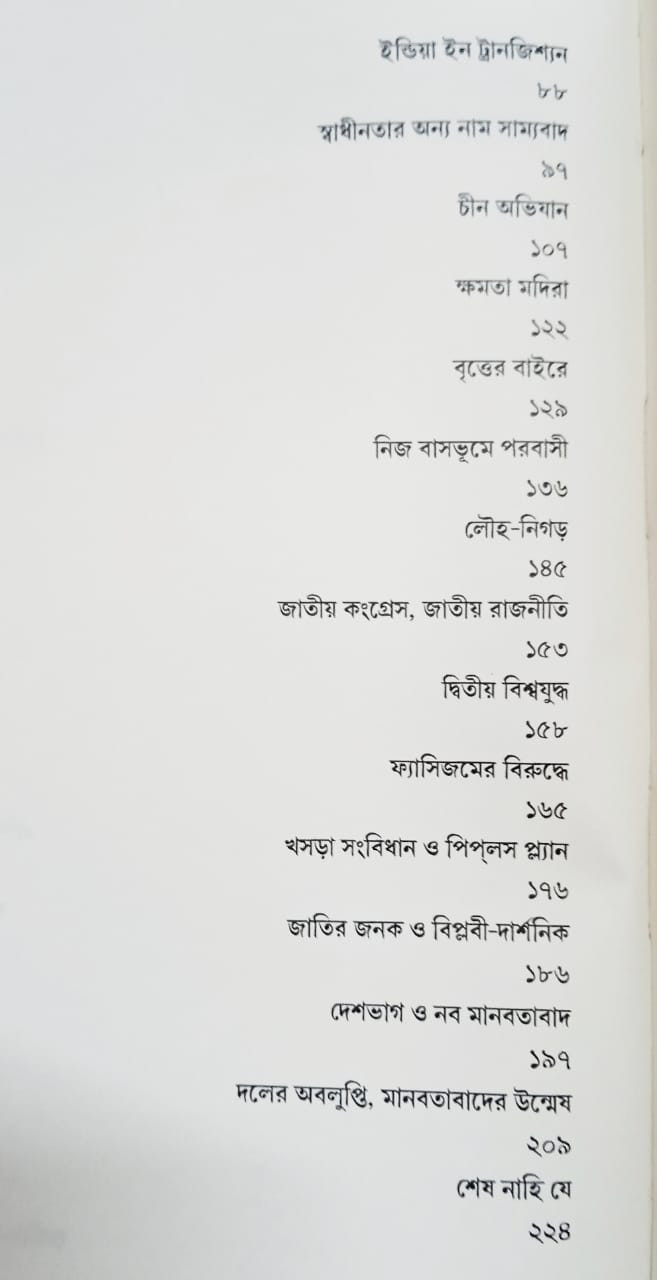 ইন্ডিয়া ইন ট্রানজিশান
৮৮
স্বাধীনতার অন্য নাম সাম্যবাদ
৯৭
চীন অভিযান
১০৭
ক্ষমতা মদিরা
১২২
বৃত্তের বাইরে
১২৯
নিজ বাসভূমে পরবাসী
১৩৬
লৌহ-নিগড়
১৪৫
জাতীয় কংগ্রেস, জাতীয় রাজনীতি
১৫৩
দ্বিতীয় বিশ্বযুদ্ধ
১৫৮
ফ্যাসিজমের বিরুদ্ধে
১৬৫
খসড়া সংবিধান ও পিপ্‌লস প্ল্যান
১৭৬
জাতির জনক ও বিপ্লবী-দার্শনিক
১৮৬
দেশভাগ ও নব মানবতাবাদ
১৯৭
দলের অবলুপ্তি, মানবতাবাদের উন্মেষ
২০৯
শেষ নাহি যে
২২৪